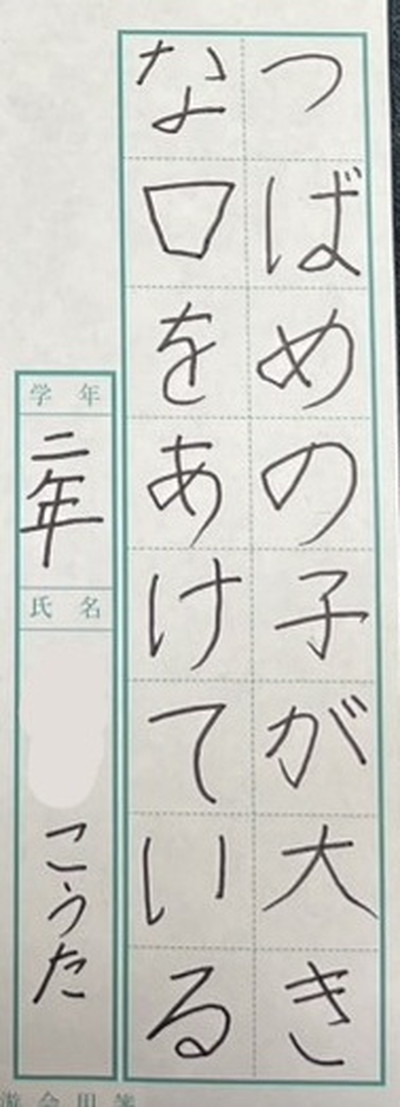 つばめの子が大き
な口をあけている
学年
二年
氏名
こうた